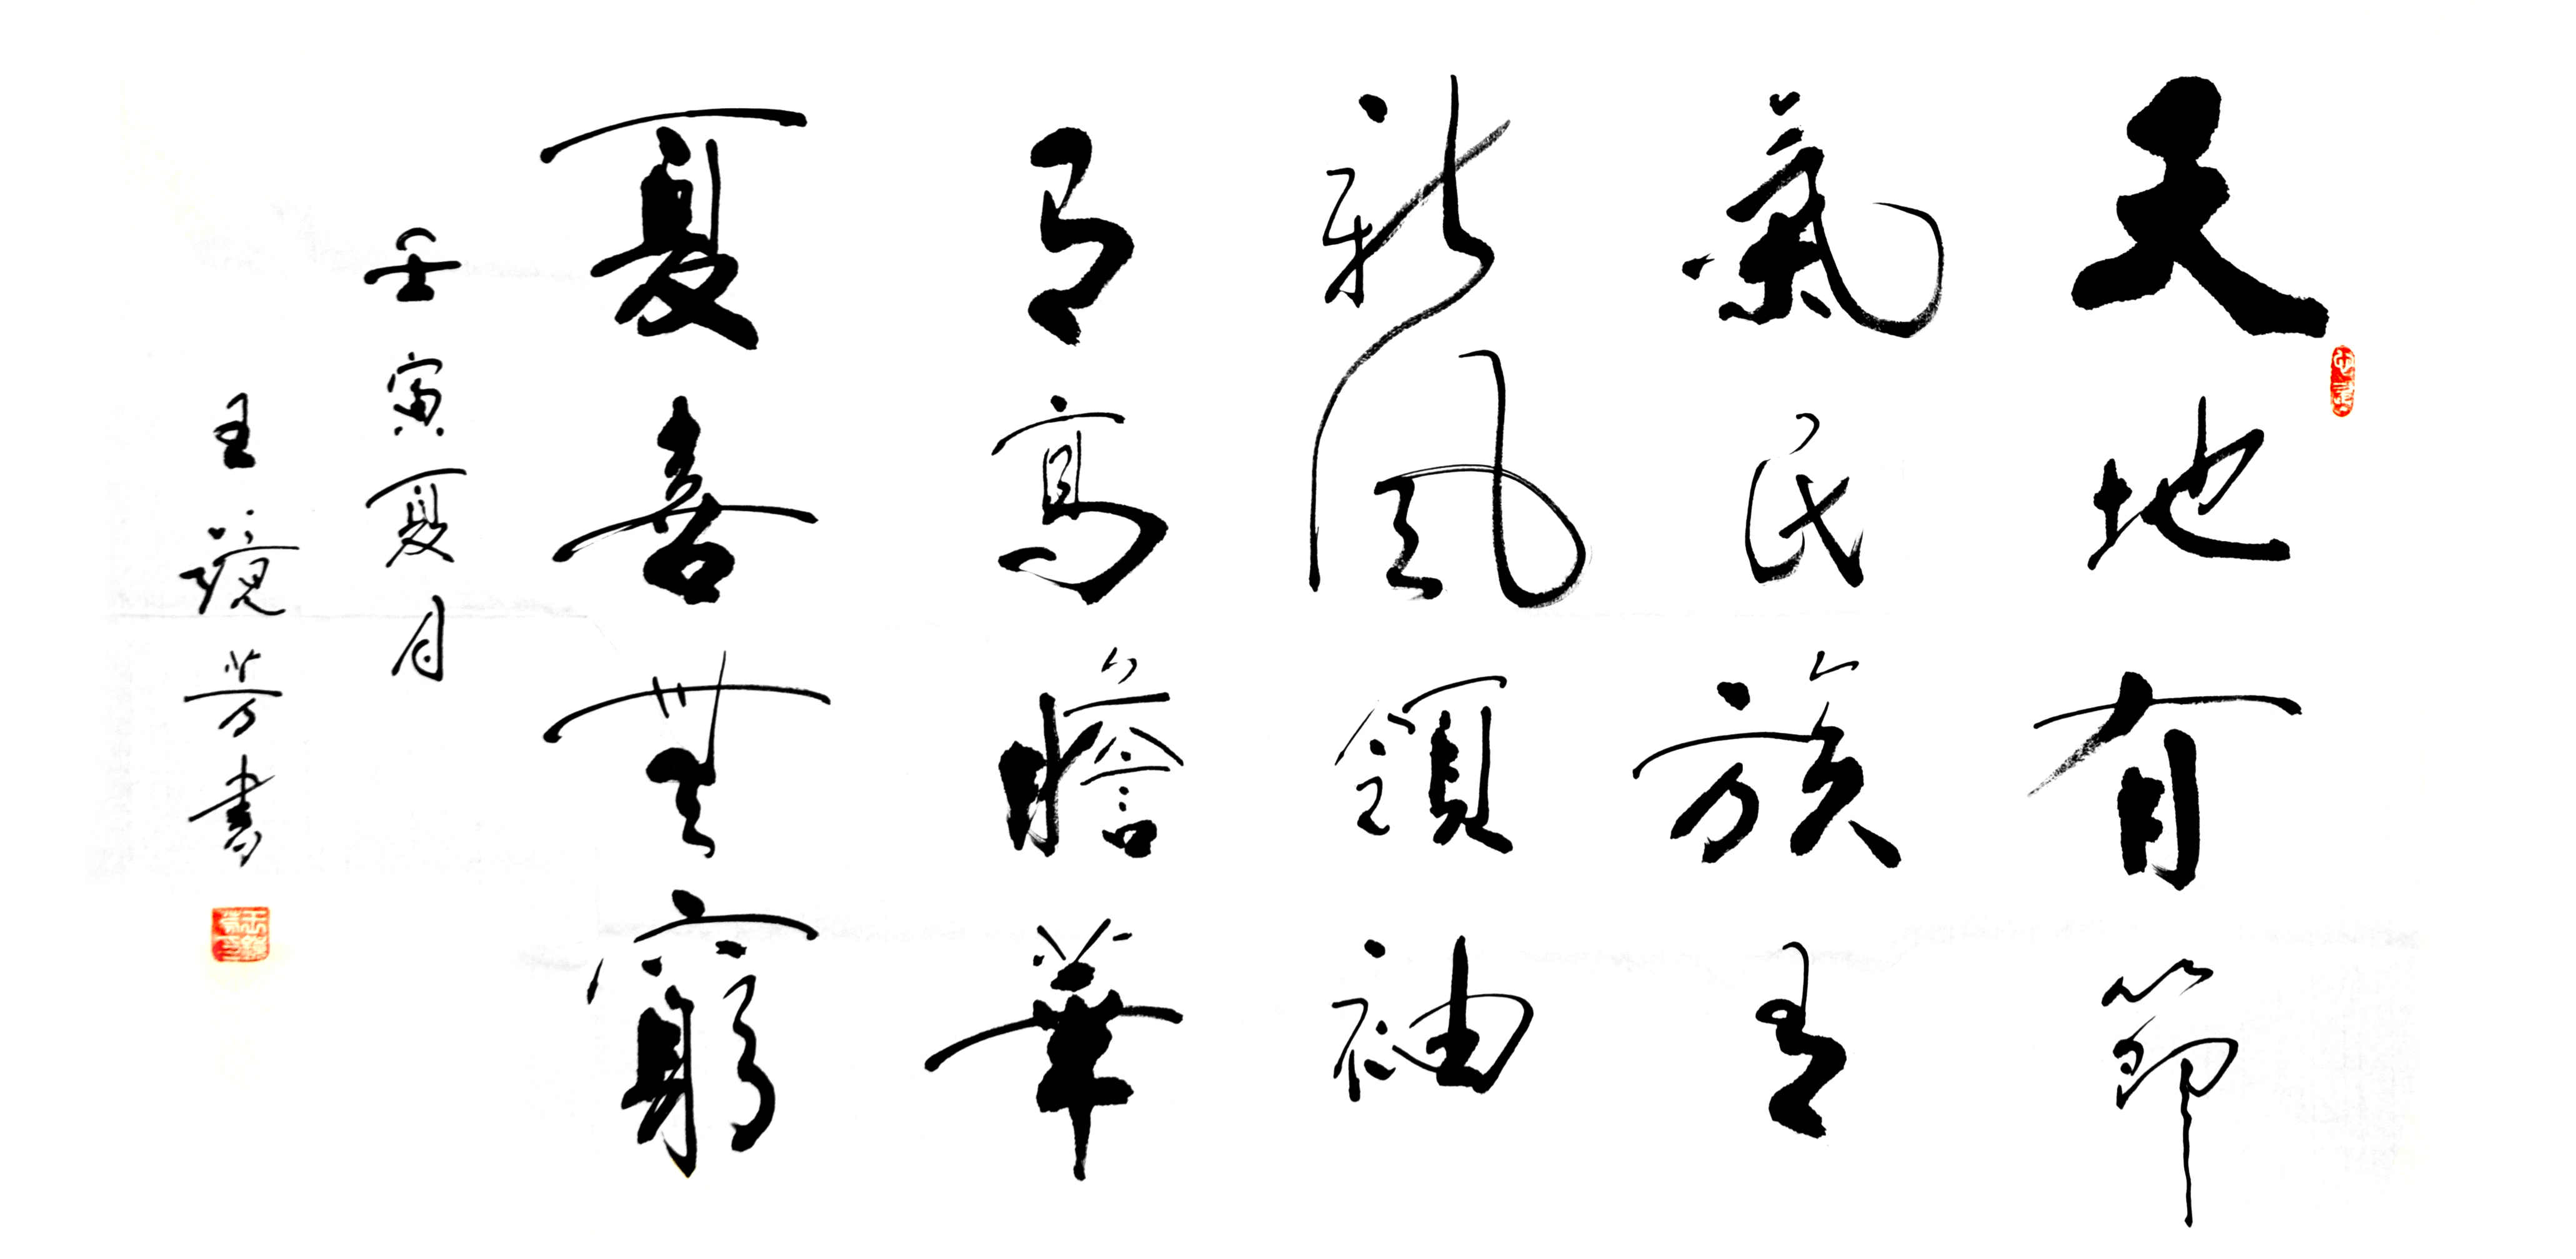 天地有節
氣民族有
新風領袖
有高瞻華
夏喜無窮
壬寅夏月
王鏡芳書